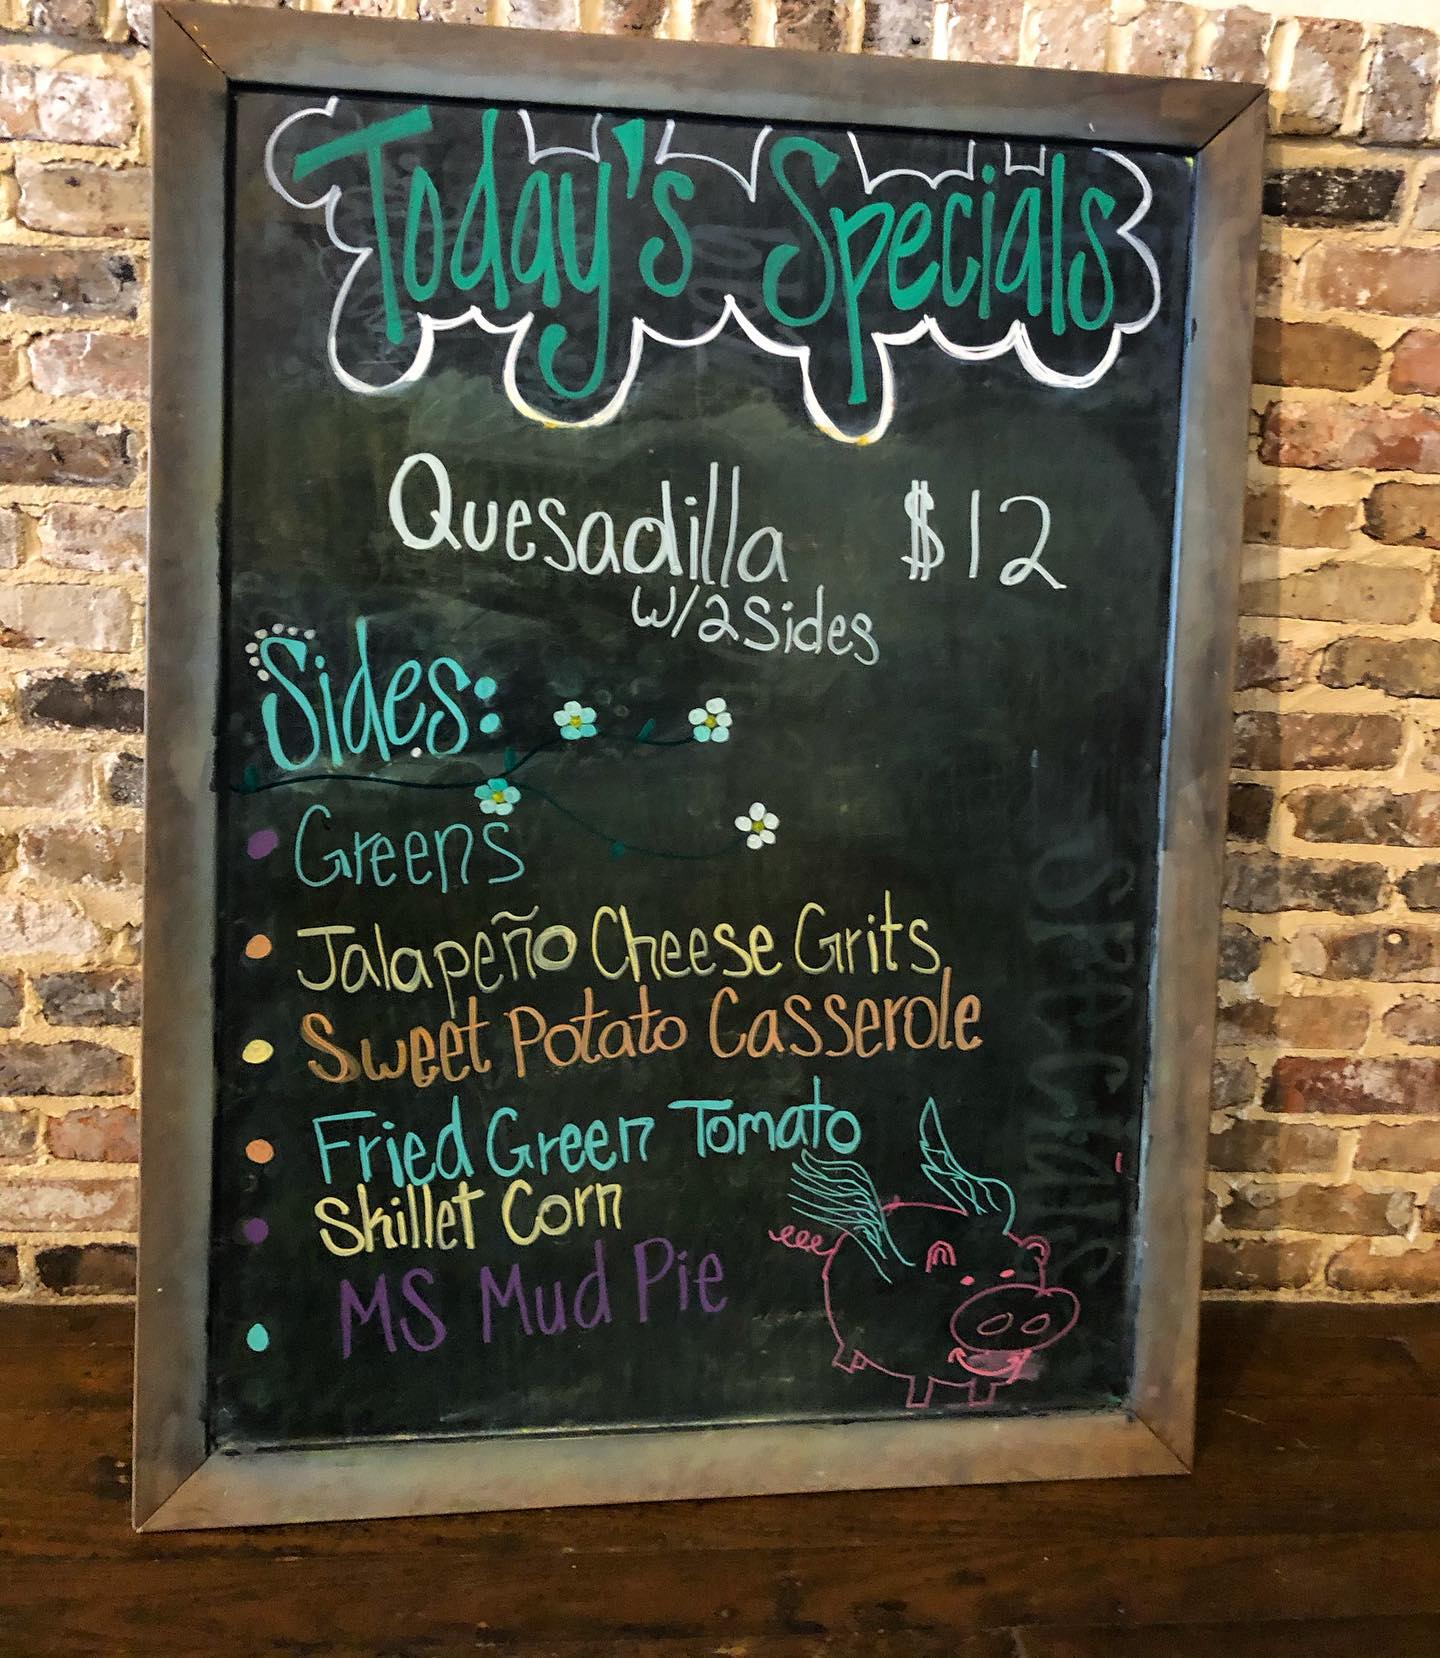 Today's Specials
Quesadilla $12
w/2 Sides
Sides:
• Greens
• Jalapeño Cheese Grits
• Sweet Potato Casserole
• Fried Green Tomato
• Skillet Corn
• MS Mud Pie
SPECIALS